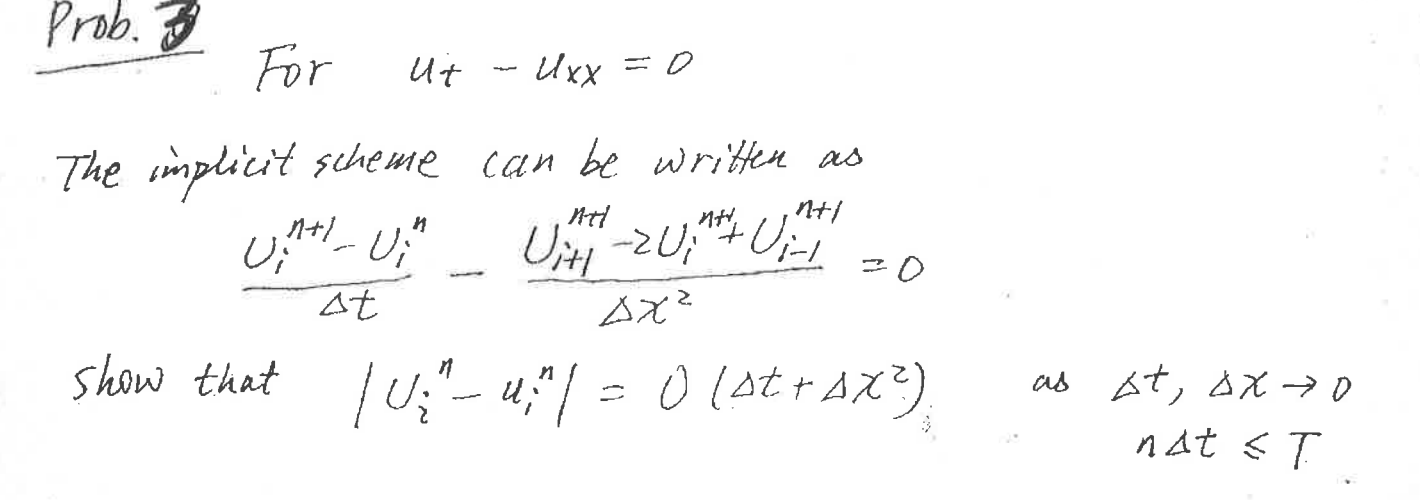 Prob. 3
For u_t - u_xx = 0
The implicit scheme can be written as
(U_i^{n+1} - U_i^n)/Δt - (U_{i+1}^{n+1} - 2U_i^{n+1} + U_{i-1}^{n+1})/Δx² = 0
show that |U_i^n - u_i^n| = O(Δt + Δx²) as Δt, Δx → 0
nΔt ≤ T